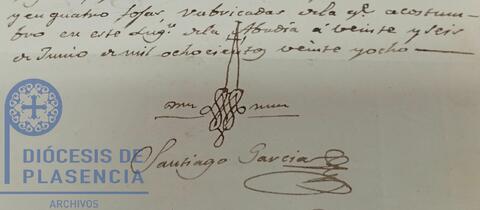 y en quatro fojas rubricadas de la qe. acostum-
bro en este Lugr. de la Abadia á veinte y seis
de Junio de mil ochocientos veinte y ocho
DIÓCESIS DE
PLASENCIA
ARCHIVOS
Santiago Garcia